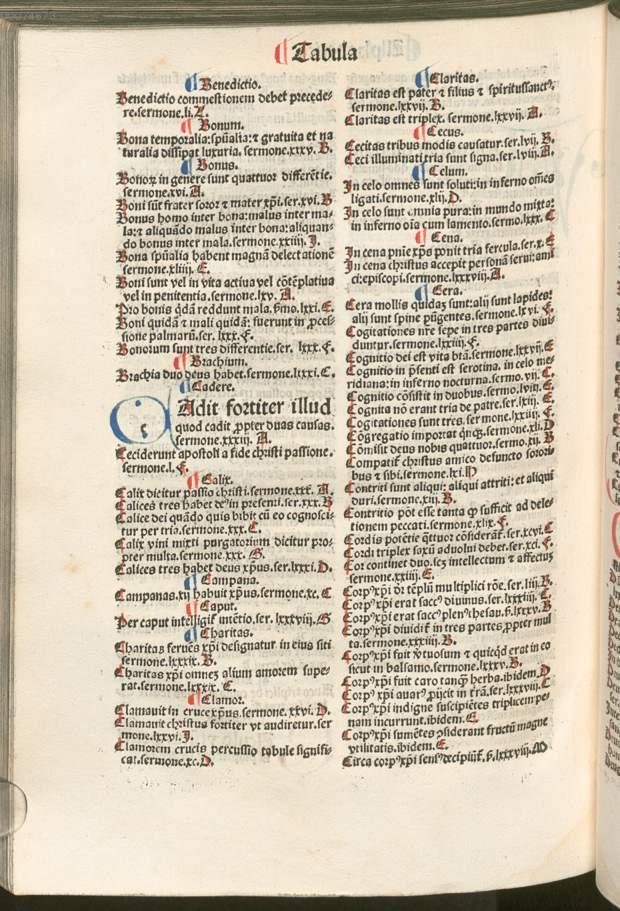 ¶ Tabula
¶ Benedictio.
Benedictio commestionem debet precede-
re.sermone.li.
¶ Bonum.
Bona temporalia:spũalia:⁊ gratuita et na
turalia dissipat luxuria. sermone.xxxv. B.
¶ Bonus.
Bonoꝝ in genere sunt quattuor differẽtie.
sermone.xvi. A.
Boni sũt frater soror ⁊ mater xp̃i.ser.xvi. B
Bonus homo inter bona:malus inter ma-
la:⁊ aliquãdo malus inter bona:aliquan-
do bonus inter mala.sermone.xxiiij. J.
Bona spũalia habent magnã delectationẽ
sermone.xliiij. E.
Boni sunt vel in vita actiua vel cõtẽplatiua
vel in penitentia.sermone.lxv. A.
Pro bonis q̃dã reddunt mala. .lxxi.E.
Boni quidã ⁊ mali quidã: fuerunt in ꝓces-
sione palmarũ.ser. lxxx. F.
Bonorum sunt tres differentie.ser. lxxx. F.
¶ Brachium.
Brachia duo deus habet.sermone.lxxxi.C.
¶ Cadere.
Cadit fortiter illud
quod cadit ꝓpter duas causas.
sermone.xxxiij. A.
Ceciderunt apostoli a fide christi passione.
sermone.l. F.
¶ Calix.
Calix dicitur passio christi.sermone.xxx. A.
Calices tres habet deꝰ in presenti.ser.xxx.B
Calice dei quãdo quis bibit cũ eo cognosci-
tur per tria.sermone.xxx. C.
Calix vini mixti purgatorium dicitur pro-
pter multa.sermone.xxx. G.
Calices tres habet deus xp̃us.ser.lxxxi.D.
¶ Campana.
Campanas.xij habuit xp̃us.sermone.xc. C
¶ Caput.
Per caput intelligit᷑ intẽtio.ser. lxxxviij.G
¶ Charitas.
Charitas feruẽs xp̃i designatur in eius siti
sermone.lxxxix. B.
Charitas xp̃i omnẽ alium amorem supe-
rat.sermone.lxxxix. C.
¶ Clamor.
Clamauit in cruce xp̃us.sermone.xxvi. D.
Clamauit christus fortiter vt audiretur.ser
mone.lxxvi. J.
Clamorem crucis percussio tabule signifi-
cat.sermone.xc.D.
¶ Claritas.
Claritas est pater ⁊ filius ⁊ spiritussanctꝰ.
sermone.lxxvij. B.
Claritas est triplex. sermone.lxxvij. A.
¶ Cecus.
Cecitas tribus modis causatur.ser.lvij. B.
Ceci illuminati tria sunt signa.ser.lvij.A.
¶ Celum.
In celo omnes sunt soluti:in inferno om̃es
ligati.sermone.xlij.D.
In celo sunt omnia pura:in mundo mixta:
in inferno oĩa cum lamento.sermo.lxxx. C
¶ Cena.
In cena pñie xp̃s ponit tria fercula.ser.x.E
In cena christus accepit personã serui:ami
ci:episcopi.sermone.lxxxviij.A.
¶ Cera.
Cera mollis quidaꝫ sunt:alij sunt lapides:
alij sunt spine pũgentes.sermone.lxvi. F.
Cogitationes nr̃e sepe in tres partes diui-
duntur.sermone.lxxiiij. F.
Cognitio dei est vita btã.sermone.lxxvij.E
Cognitio in p̃senti est serotina. in celo me
ridiana:in inferno nocturna.sermo.vij. C.
Cognitio cõsistit in duobus.sermo.lviij. E.
Cognita nõ erant tria de patre.ser.lxij. E.
Cogitationes sunt tres.sermone.lxxiiij. F.
Cõgregatio importat q̃nqꝫ.sermone.xli.D
Cõmisit deus nobis quattuor.sermo.xij. B.
Compatit᷑ christus amico defuncto sorori
bus ⁊ sibi.sermone.lxi.
Contriti sunt aliqui: aliqui attriti: et aliqui
duri.sermone.xij. B.
Contritio põt esse tanta ꝙ sufficit ad dele-
tionem peccati.sermone.xlix. F.
Cordis potẽtie q̃ttuor cõsiderãt᷑.ser.xcvi.C
Cordi triplex saxũ aduolui debet.ser.xci. F.
Cor continet duo.scꝫ intellectum ⁊ affectũ
sermone.xxiiij. E.
Corpꝰ xp̃i dr̃ tẽplũ multiplici rõe.ser.liij.B.
Corpꝰ xp̃i erat saccꝰ diuinus.ser.lxxxiiij. C.
Corpꝰ xp̃i erat saccꝰ plenꝰ thesau. .lxxxv.B
Corpꝰ xp̃i diuidit᷑ in tres partes ꝓpter mul
ta.sermone.xxxiiij. B.
Corpꝰ xp̃i fuit v̓tuosum ⁊ quicqd erat in co
sicut in balsamo.sermone.lxxxv. B.
Corpꝰ xp̃i fuit caro tanq̃ herba.ibidem.D
Corpꝰ xp̃i auarꝰ ꝓijcit in tr̃ã.ser.lxxxviij.C
Corpꝰ xp̃i indigne suscipiẽtes triplicem pe-
nam incurrunt.ibidem. E.
Corpꝰ xp̃i sumẽtes ꝯsiderant fructũ magne
vtilitatis.ibidem. E.
Circa corpꝰ xp̃i sensꝰ decipiũt᷑. .lxxxviij.